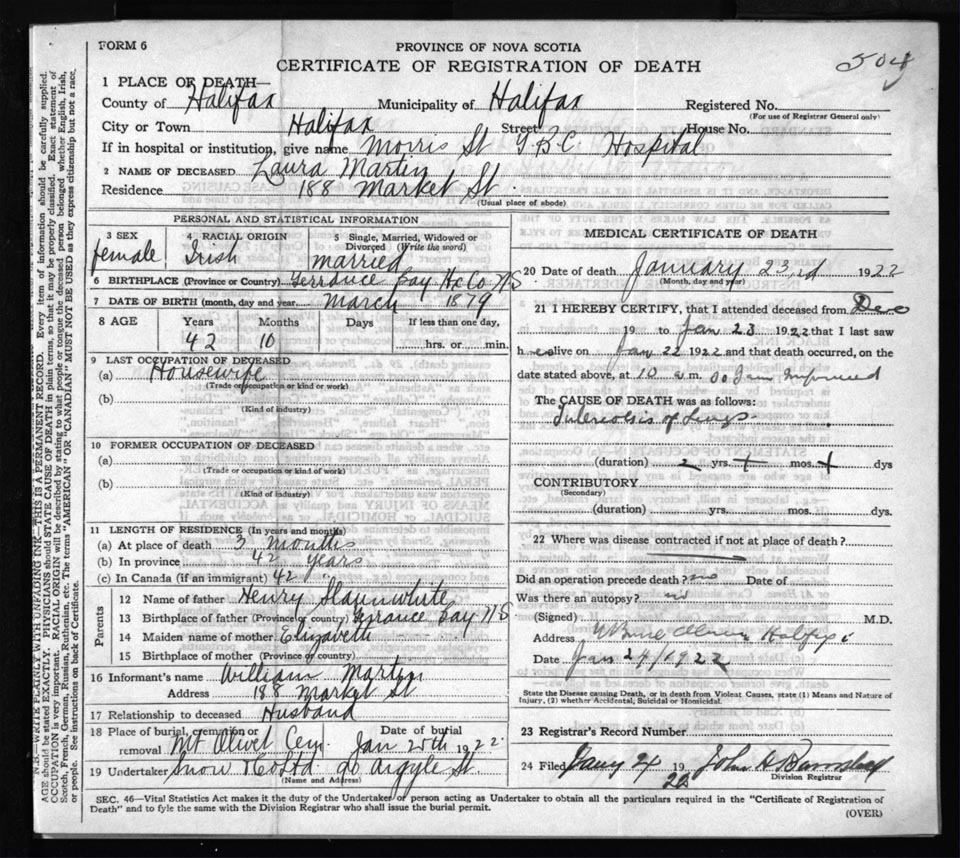 FORM 6
PROVINCE OF NOVA SCOTIA
CERTIFICATE OF REGISTRATION OF DEATH
504
1 PLACE OF DEATH—
County of Halifax Municipality of Halifax Registered No.
(For use of Registrar General only)
City or Town Halifax Street House No.
If in hospital or institution, give name Morris St T.B.C. Hospital
2 NAME OF DECEASED Laura Martin
Residence 188 Market St.
(Usual place of abode)
PERSONAL AND STATISTICAL INFORMATION
3 SEX 4 RACIAL ORIGIN 5 Single, Married, Widowed or Divorced (Write the word)
female Irish married
6 BIRTHPLACE (Province or Country) Terrance Bay Hx Co N S
7 DATE OF BIRTH (month, day and year) March 1879
8 AGE Years Months Days If less than one day,
42 10 hrs. or min.
9 LAST OCCUPATION OF DECEASED
(a) Housewife
(Trade or occupation or kind of work)
(b)
(Kind of industry)
10 FORMER OCCUPATION OF DECEASED
(a)
(Trade or occupation or kind of work)
(b)
(Kind of industry)
11 LENGTH OF RESIDENCE (In years and months)
(a) At place of death 3 months
(b) In province 42 years
(c) In Canada (if an immigrant) 42 "
Parents
12 Name of father Henry Slaunwhite
13 Birthplace of father (Province or country) Terrance Bay N S
14 Maiden name of mother Elizabeth
15 Birthplace of mother (Province or country)
16 Informant's name William Martin
Address 188 Market St
17 Relationship to deceased Husband
18 Place of burial, cremation or removal Mt Olivet Cem. Date of burial Jan 25th 1922
19 Undertaker Snow & Co Ltd 90 Argyle St.
(Name and Address)
MEDICAL CERTIFICATE OF DEATH
20 Date of death January 23rd 1922
(Month, day and year)
21 I HEREBY CERTIFY, that I attended deceased from Dec
19 to Jan 23 1922 that I last saw
h er alive on Jan 22 1922 and that death occurred, on the
date stated above, at 10 a.m. so I am informed
The CAUSE OF DEATH was as follows:
Tuberculosis of Lungs
(duration) 2 yrs. + mos. + dys
CONTRIBUTORY
(Secondary)
(duration) yrs. mos. dys.
22 Where was disease contracted if not at place of death?
Did an operation precede death? no Date of
Was there an autopsy? no
(Signed) M.D.
Address Halifax
Date Jan 24/1922
State the Disease causing Death, or in death from Violent Causes, state (1) Means and Nature of Injury, (2) whether Accidental, Suicidal or Homicidal.
23 Registrar's Record Number
24 Filed Jany 24 1922 John H
Division Registrar
SEC. 46—Vital Statistics Act makes it the duty of the Undertaker or person acting as Undertaker to obtain all the particulars required in the "Certificate of Registration of
Death" and to fyle the same with the Division Registrar who shall issue the burial permit.
(OVER)
N.B.—WRITE PLAINLY WITH UNFADING INK—THIS IS A PERMANENT RECORD. Every item of information should be carefully supplied.
AGE should be stated EXACTLY. PHYSICIANS should STATE CAUSE OF DEATH in plain terms, so that it may be properly classified. Exact statement of
OCCUPATION is very important. RACIAL ORIGIN will be described by stating to what people or tongue the deceased person belonged whether English, Irish,
Scotch, French, German, Russian, Ruthenian, etc. The terms "AMERICAN" OR "CANADIAN" MUST NOT BE USED as they express citizenship but not a race,
or people. See instructions on back of Certificate.